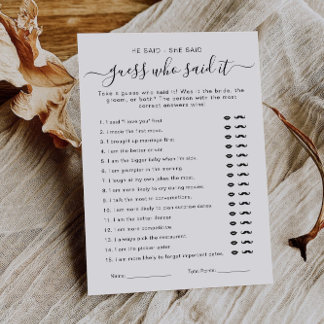 HE SAID - SHE SAID
guess who said it
Take a guess who said it! Was it the bride, the
groom, or both? The person with the most
correct answers wins!
1. I said "I love you" first.
2. I made the first move.
3. I brought up marriage first.
4. I am the better driver.
5. I am the bigger baby when I'm sick.
6. I am grumpier in the morning.
7. I laugh at my own jokes the most.
8. I am more likely to cry during movies.
9. I talk the most in conversations.
10. I am more likely to plan surprise dates.
11. I am the better dancer.
12. I am more competitive.
13. I always pick the restaurant.
14. I am the pickier eater.
15. I am more likely to forget important dates.
Name: Total Points: